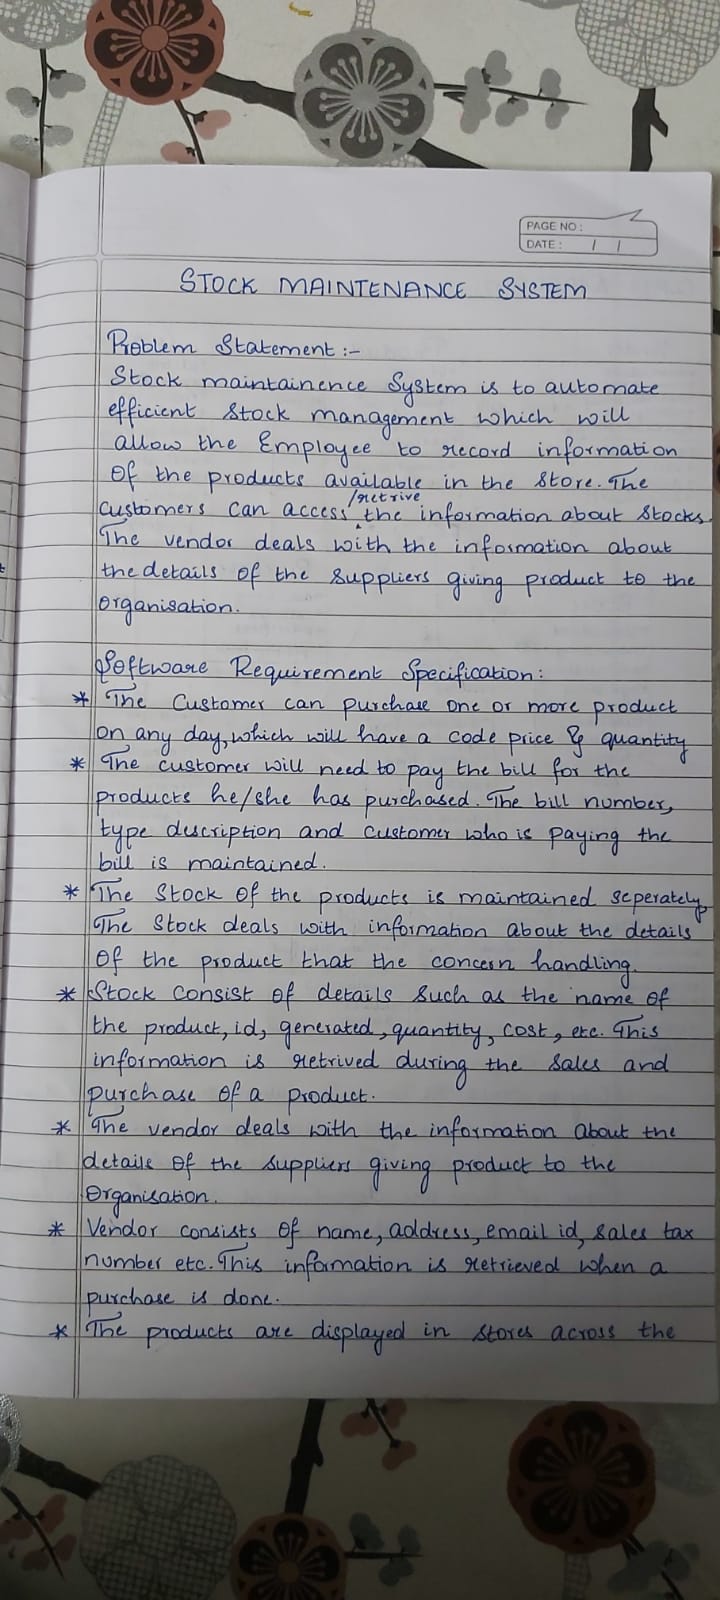 PAGE NO :
DATE : / /
STOCK MAINTENANCE SYSTEM
Problem Statement :-
Stock maintainence System is to automate
efficient Stock management which will
allow the Employee to record information
Of the products available in the store. The
/retrive
customers can access the information about Stocks.
The vendor deals with the information about
the details of the suppliers giving product to the
organisation.
Software Requirement Specification:
* The Customer can purchase one or more product
on any day, which will have a code price & quantity
* The customer will need to pay the bill for the
products he/she has purchased. The bill number,
type description and customer who is paying the
bill is maintained.
* The Stock of the products is maintained seperately.
The Stock deals with information about the details
Of the product that the concern handling.
* Stock consist of details such as the name of
the product, id, generated, quantity, cost, etc. This
information is retrived during the sales and
purchase of a product.
* The vendor deals with the information about the
details of the suppliers giving product to the
Organisation.
* Vendor consists of name, address, email id, sales tax
number etc. This information is retrieved when a
purchase is done.
* The products are displayed in stores across the